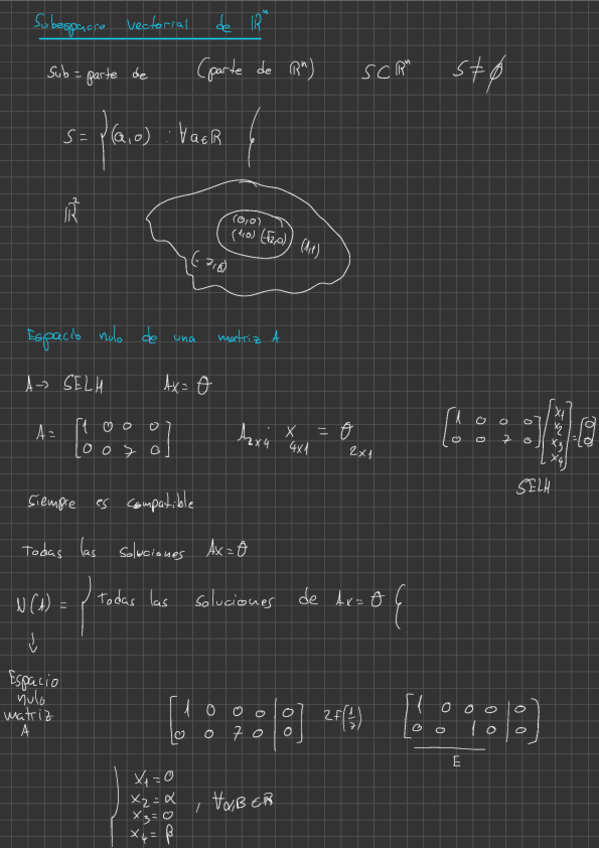 Subespacio vectorial de ℝⁿ
Sub = parte de (parte de ℝⁿ) S⊂ℝⁿ S≠∅
S = }(a,0) : ∀a∈ℝ {
ℝ²
(0,0)
(1,0) (-√2,0) (1,1)
Espacio nulo de una matriz A
A→ SELH Ax = θ
A = [1 0 0 0
0 0 7 0]
A₂ₓ₄ · x₄ₓ₁ = θ₂ₓ₁
[1 0 0 0
0 0 7 0] [x₁
x₂
x₃
x₄] = [0
0]
SELH
Siempre es compatible
Todas las soluciones Ax = θ
N(A) = } Todas las soluciones de Ax = θ {
↓
Espacio
nulo
matriz
A
[1 0 0 0 | 0
0 0 7 0 | 0] 2F(1/7) [1 0 0 0 | 0
0 0 1 0 | 0]
E
x₁ = 0
x₂ = α
x₃ = 0
x₄ = β
, ∀α,β∈ℝ